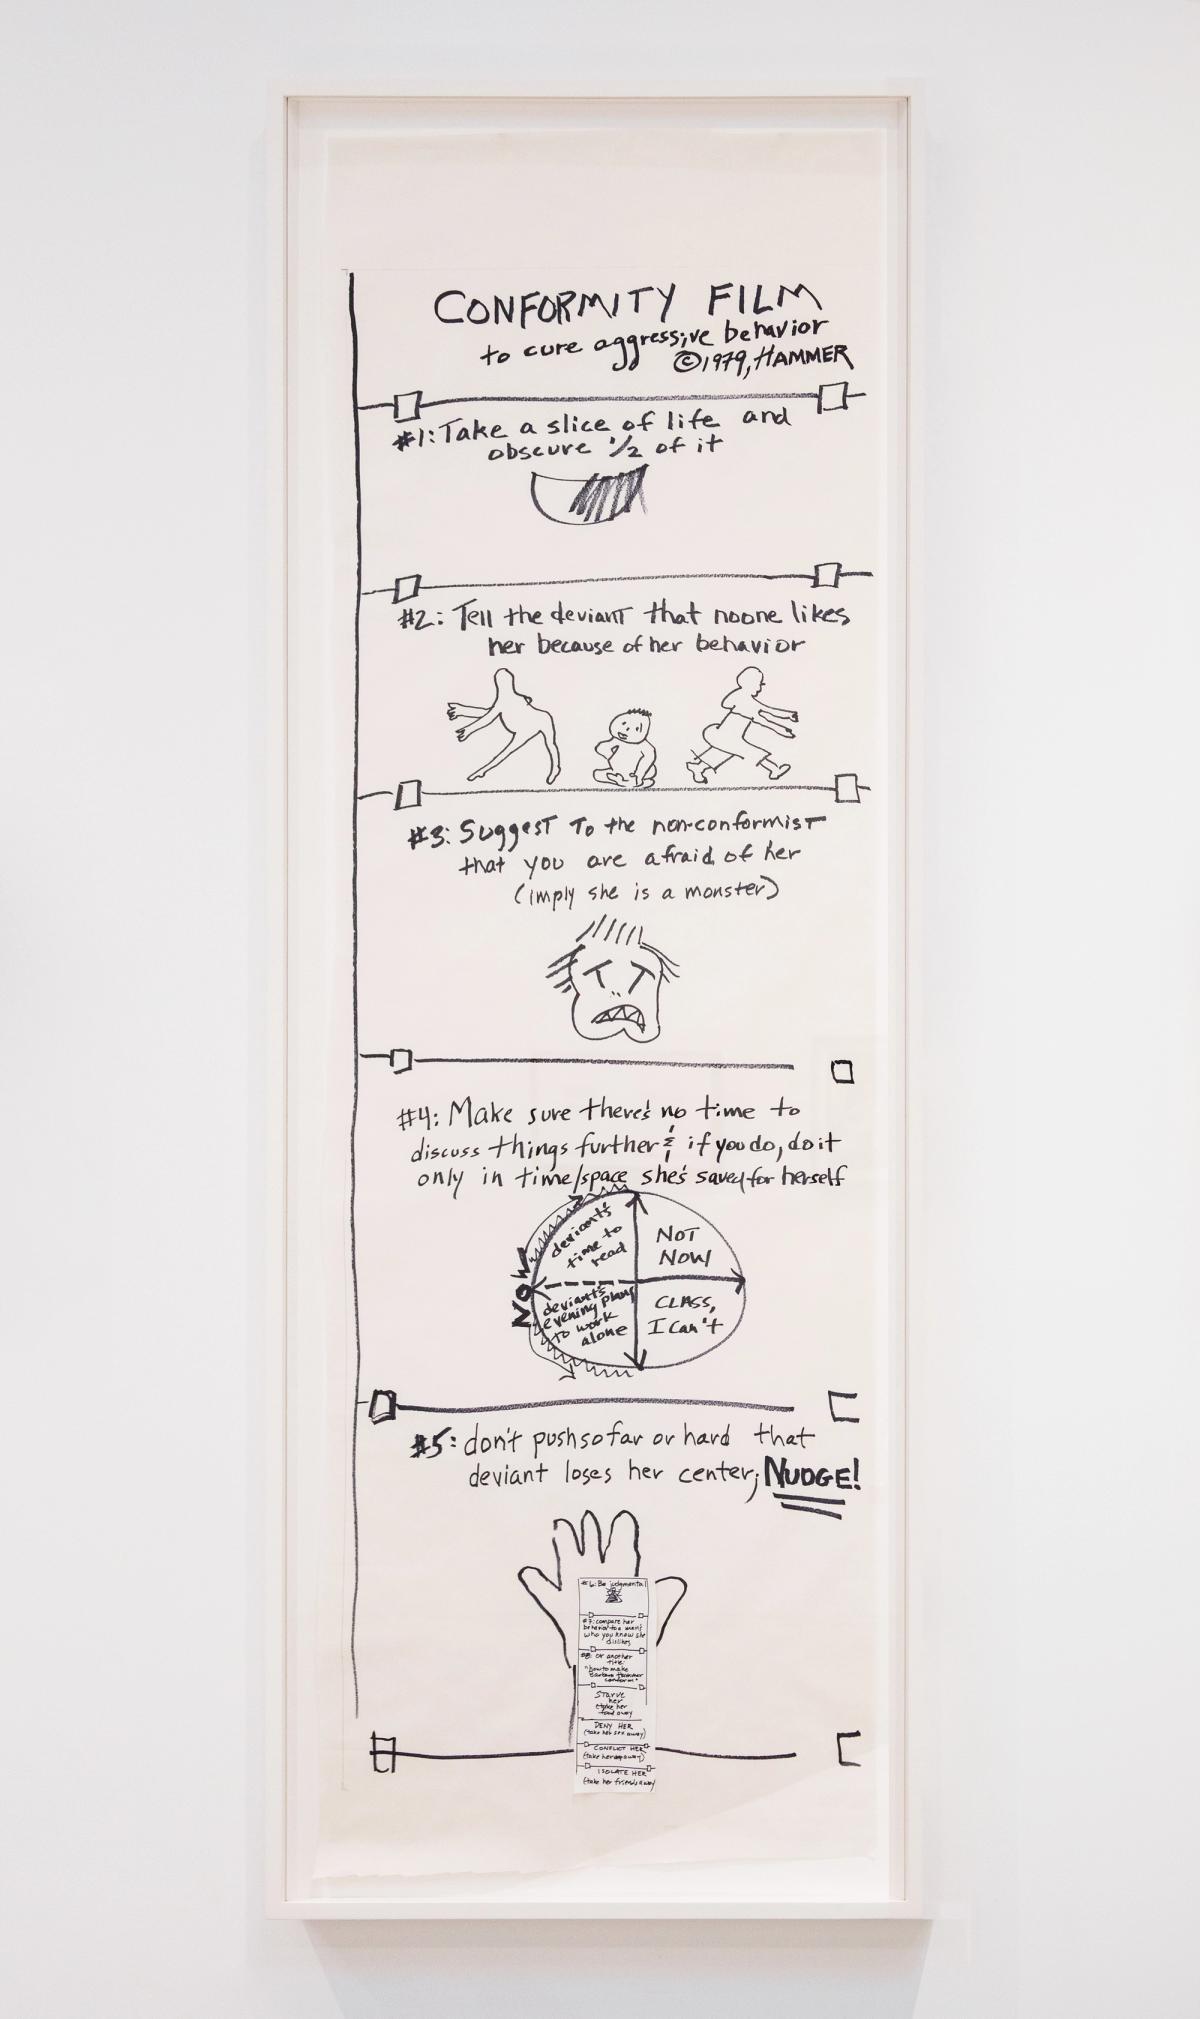 CONFORMITY FILM
to cure aggressive behavior
©1979, HAMMER
#1: Take a slice of life and
obscure 1/2 of it
#2: Tell the deviant that noone likes
her because of her behavior
#3: Suggest to the non-conformist
that you are afraid of her
(imply she is a monster)
#4: Make sure there's no time to
discuss things further & if you do, do it
only in time/space she's saved for herself
deviant's
time to
read
NOT
NOW
NOW
deviant's
evening plans
to work
alone
CLASS,
I can't
#5: don't push so far or hard that
deviant loses her center; NUDGE!
#6: Be judgmental
#7: compare her
behavior to a man's
who you know she
dislikes
#8: or another
title:
"how to make
Barbara Hammer
conform"
STARVE
her
(take her
food away
DENY HER
(take her sex away)
CONFLICT HER
(take her away)
ISOLATE HER
(take her friends away